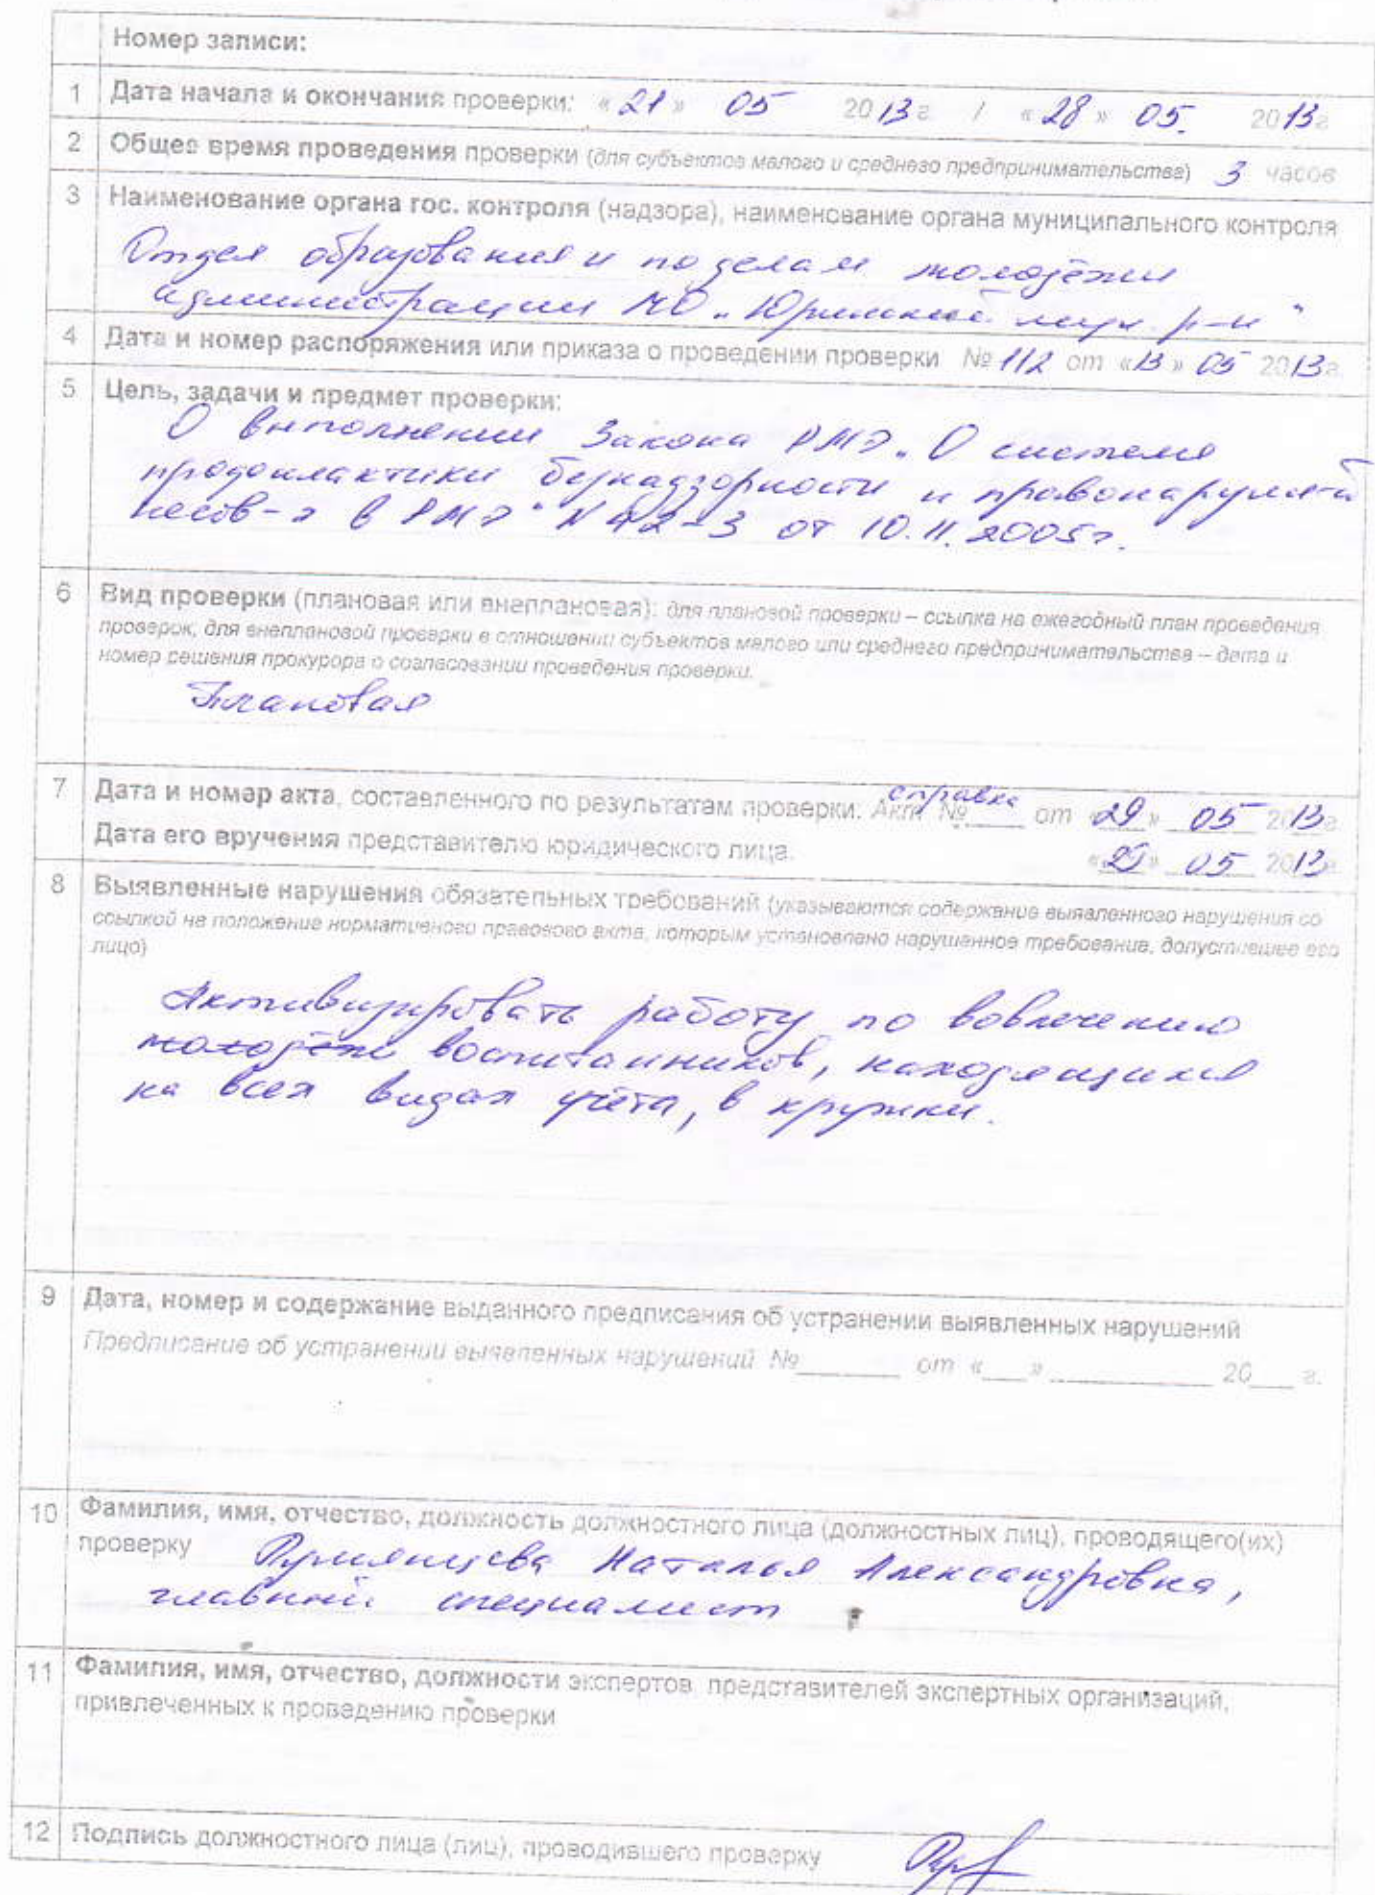 Номер записи:
1 Дата начала и окончания проверки: «21» 05 2013г / «28» 05. 2013г
2 Общее время проведения проверки (для субъектов малого и среднего предпринимательства) 3 часов
3 Наименование органа гос. контроля (надзора), наименование органа муниципального контроля
Отдел образования и по делам молодёжи
администрации МО „Юринский мун. р-н"
4 Дата и номер распоряжения или приказа о проведении проверки № 112 от «13» 05 2013г
5 Цель, задачи и предмет проверки:
О выполнении Закона РМЭ „О системе
профилактики безнадзорности и правонарушений
несов-х в РМЭ" N 42-З от 10.11.2005г.
6 Вид проверки (плановая или внеплановая): для плановой проверки – ссылка на ежегодный план проведения
проверок; для внеплановой проверки в отношении субъектов малого или среднего предпринимательства – дата и
номер решения прокурора о согласовании проведения проверки.
Плановая
7 Дата и номер акта, составленного по результатам проверки: Акт № справка от «29» 05 2013г
Дата его вручения представителю юридического лица. «29» 05 2013г
8 Выявленные нарушения обязательных требований (указываются содержание выявленного нарушения со
ссылкой на положение нормативного правового акта, которым установлено нарушенное требование, допустившее его
лицо)
Активизировать работу по вовлечению
молодёжи воспитанников, находящихся
на всех видах учёта, в кружки.
9 Дата, номер и содержание выданного предписания об устранении выявленных нарушений
Предписание об устранении выявленных нарушений №_______ от «___» ___________ 20___ г.
10 Фамилия, имя, отчество, должность должностного лица (должностных лиц), проводящего(их)
проверку Румянцева Наталья Александровна,
главный специалист
11 Фамилия, имя, отчество, должности экспертов представителей экспертных организаций,
привлеченных к проведению проверки
12 Подпись должностного лица (лиц), проводившего проверку